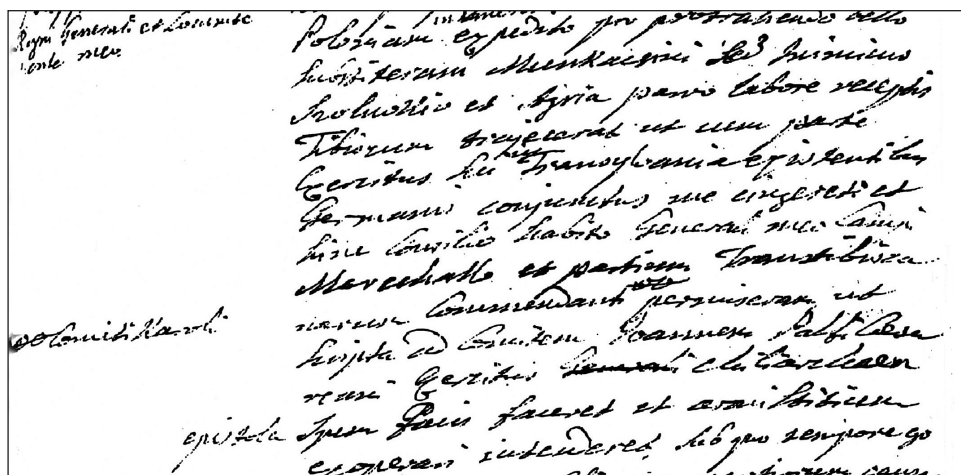 Regni Generali et Locumte
nente meo
Poloniam expedito pro protrahendo bello
substiteram Munkacsini sed inimicus
Szolnokio et Agria parvo labore receptis
Tibiscum trajecerat ut cum parte
Exercitus sui in Transylvania existentibus
Germanis conjunctus me cingeret et
hinc Consilio habito Generali meo Campi
Marechallo et partium Transtibisca
narum Commendanti permiseram ut
Comiti Karoli
scripta ad Comitem Joannem Palfi Caesa
reani Exercitus Generali
epistola spem Pacis faceret et armistitium
exoperari intenderet, sub quo tempore ego